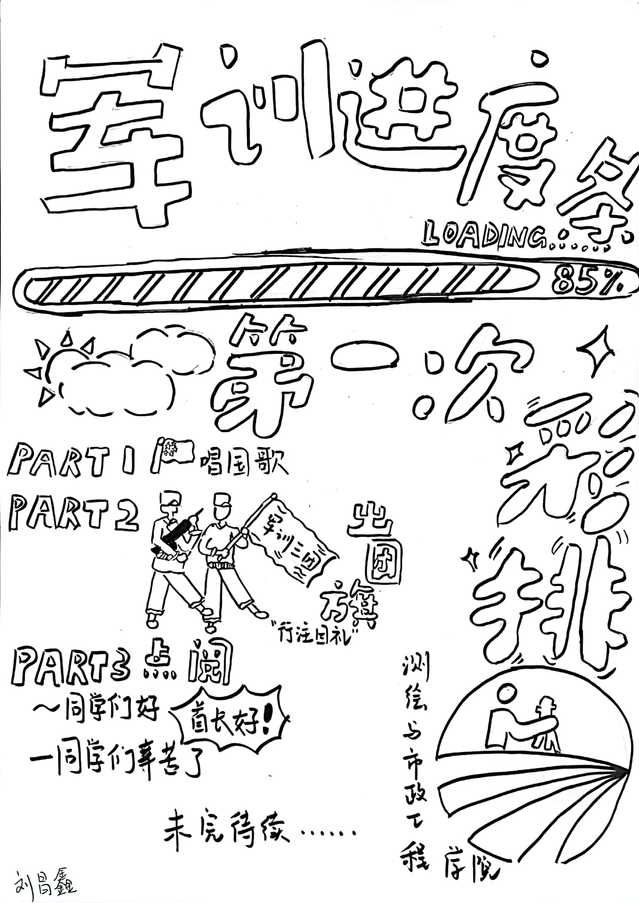 军训进度条
LOADING......
85%
第一次
彩排
PART 1 唱国歌
PART 2
军训二团
出团旗
"行注目礼"
PART 3 点阅
～同学们好
首长好!
一同学们辛苦了
未完待续……
测绘与市政工程学院
刘昌鑫